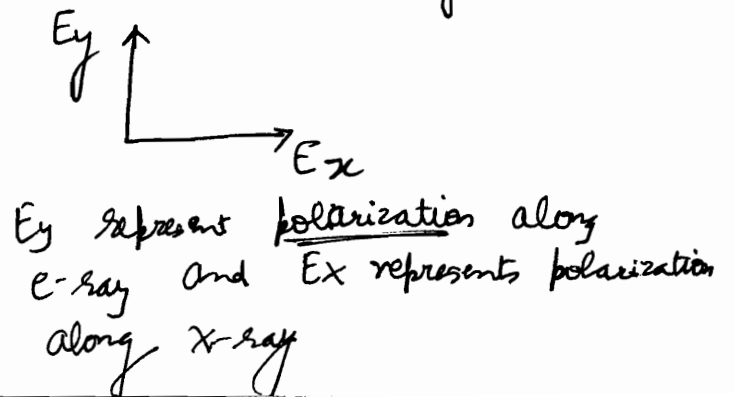 Ey
Ex
Ey represent polarization along
e-ray and Ex represents polarization
along x-ray